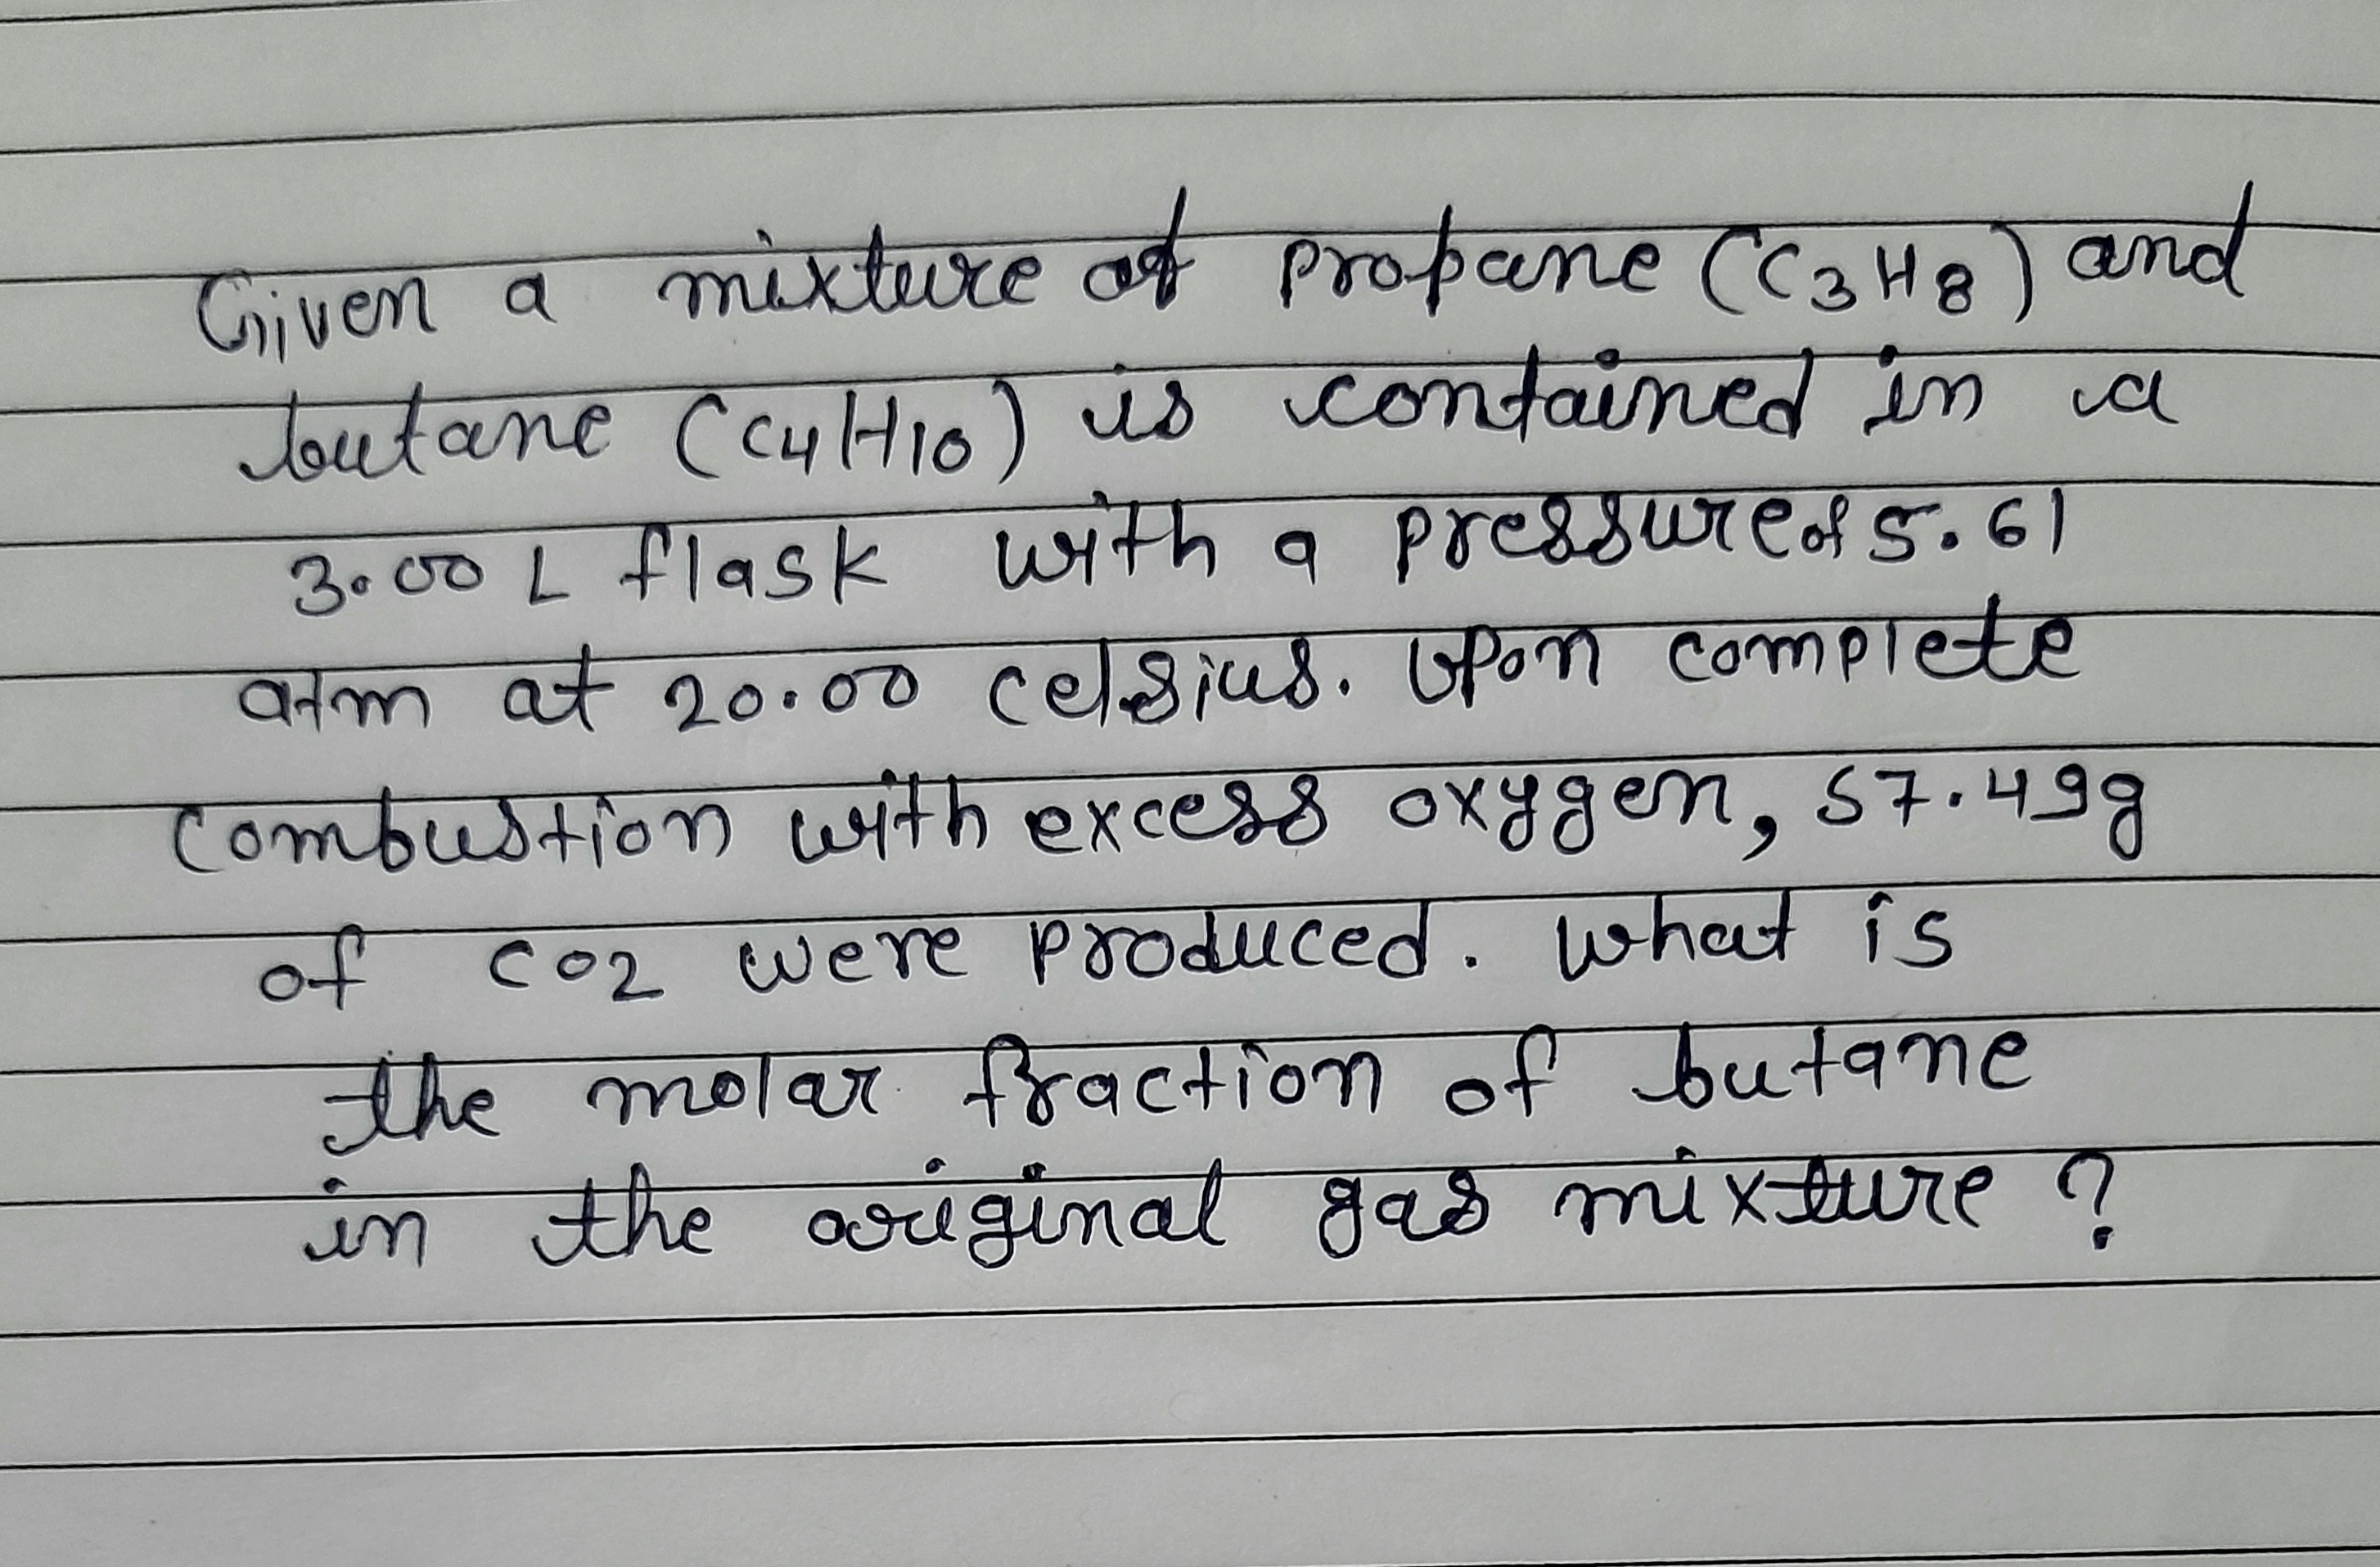 Given a mixture of propane (C3H8) and
butane (C4H10) is contained in a
3.00 L flask with a pressure of 5.61
atm at 20.00 celsius. Upon complete
combustion with excess oxygen, 57.49g
of CO2 were produced. What is
the molar fraction of butane
in the original gas mixture ?